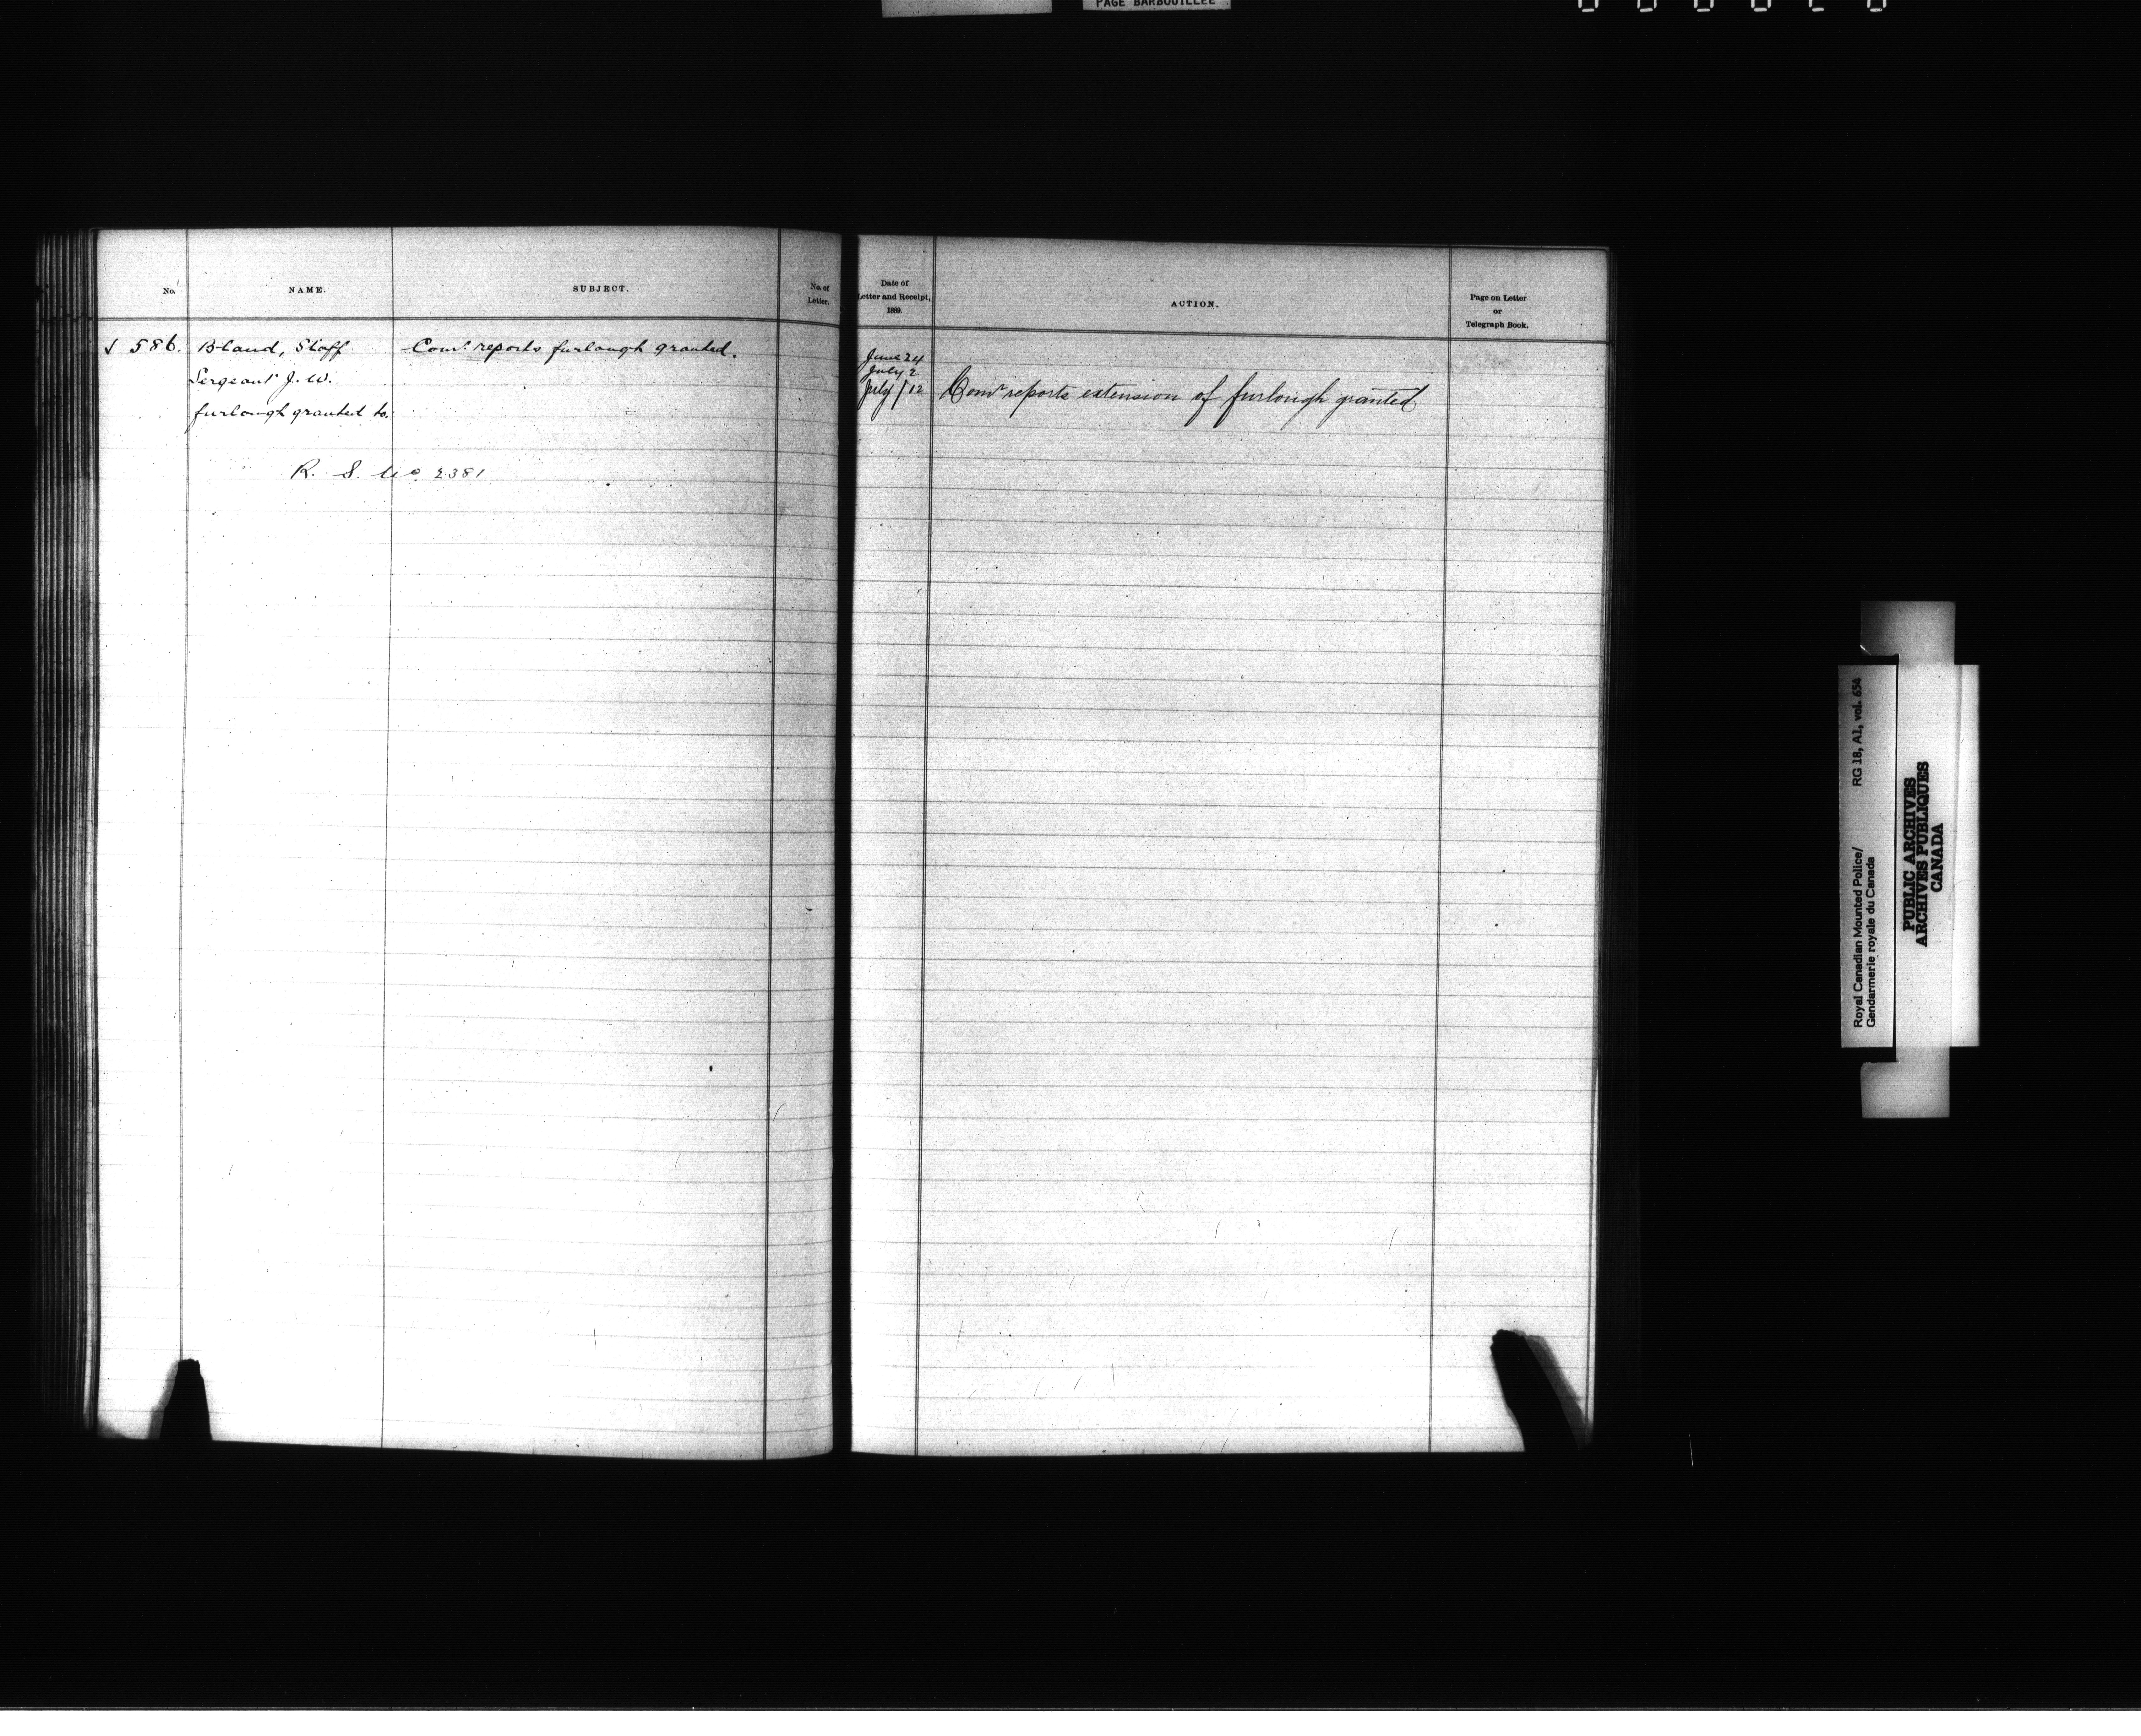 PAGE BARBOUILLÉE
No.
NAME.
SUBJECT.
No. of
Letter.
Date of
Letter and Receipt,
1889.
ACTION.
Page on Letter
or
Telegraph Book.
√ 586. Bland, Staff Comr. reports furlough granted.
Sergeant J. W.
furlough granted to.
R. S. No. 2381
June 24
July 2
July / 12 Comr reports extension of furlough granted
Royal Canadian Mounted Police/ RG 18, A1, vol. 654
Gendarmerie royale du Canada
PUBLIC ARCHIVES
ARCHIVES PUBLIQUES
CANADA